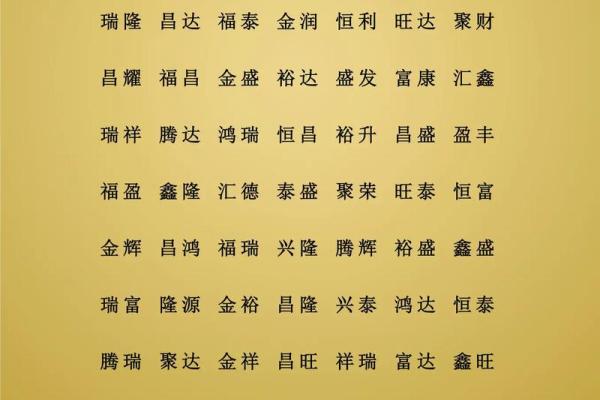 瑞隆 昌达 福泰 金润 恒利 旺达 聚财
昌耀 福昌 金盛 裕达 盛发 富康 汇鑫
瑞祥 腾达 鸿瑞 恒昌 裕升 昌盛 盈丰
福盈 鑫隆 汇德 泰盛 聚荣 旺泰 恒富
金辉 昌鸿 福瑞 兴隆 腾辉 裕盛 鑫盛
瑞富 隆源 金裕 昌隆 兴泰 鸿达 恒泰
腾瑞 聚达 金祥 昌旺 祥瑞 富达 鑫旺